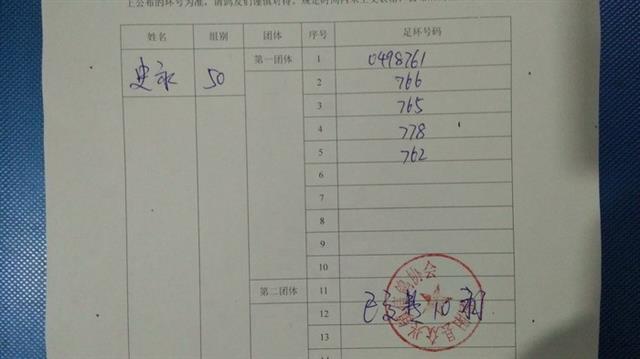 上公布的环号为准，请鸽友们谨慎对待，规定时间内未上交表格
姓名 组别 团体 序号 足环号码
史永 50 第一团体 1 0498761
2 766
3 765
4 778
5 762
6
7
8
9
10
第二团体 11
12
13